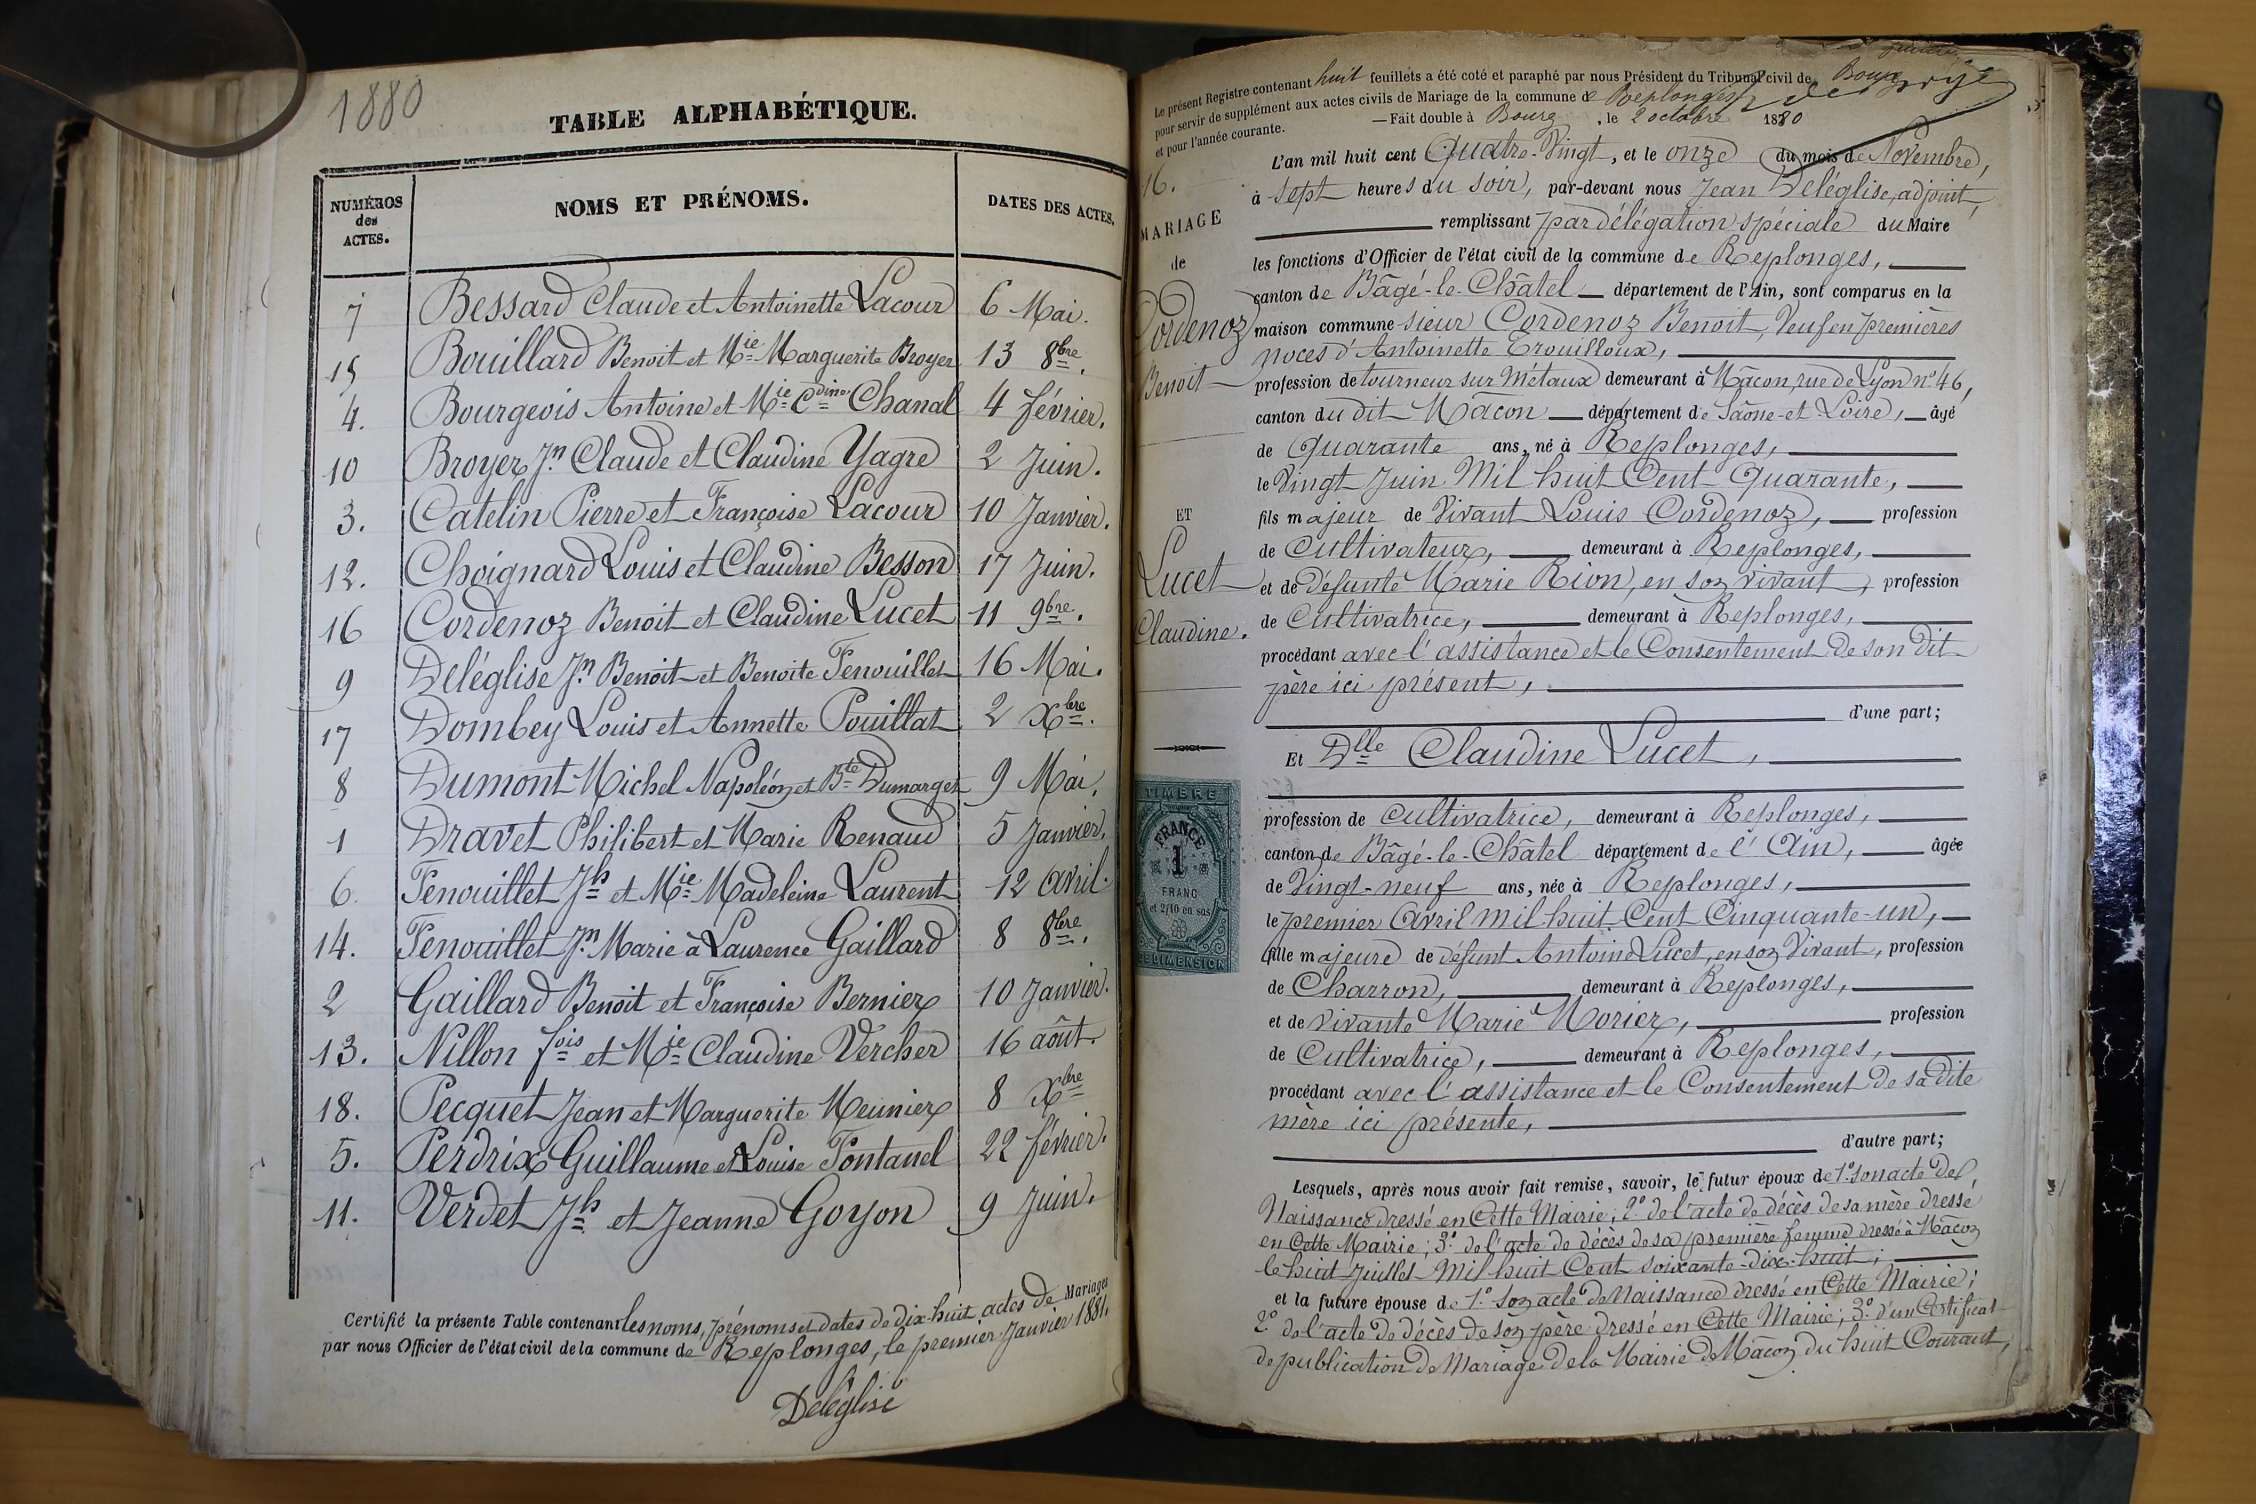 1880
TABLE ALPHABÉTIQUE.
NUMÉROS des ACTES. NOMS ET PRÉNOMS. DATES DES ACTES.
7 Bessard Claude et Antoinette Lacour 6 Mai.
15 Bouillard Benoit et Mie Marguerite Broyer 13 8bre.
4. Bourgeois Antoine et Mie Cdine Chanal 4 février.
10 Broyer Jn Claude et Claudine Yagre 2 Juin.
3. Catelin Pierre et Françoise Lacour 10 Janvier.
12. Choignard Louis et Claudine Besson 17 Juin.
16 Cordenoz Benoit et Claudine Lucet 11 9bre.
9 Deléglise Jn Benoit et Benoite Fenouillet 16 Mai.
17 Dombey Louis et Annette Pouillat 2 Xbre.
8 Dumont Michel Napoléon et Bte Dumarget 9 Mai.
1 Dravet Philibert et Marie Renaud 5 Janvier.
6. Fenouillet Jh et Mie Madeleine Laurent 12 avril.
14. Fenouillet Jn Marie à Laurence Gaillard 8 8bre.
2 Gaillard Benoit et Françoise Bernier 10 Janvier.
13. Nillon fois et Mie Claudine Vercher 16 août.
18. Pecquet Jean et Marguerite Meunier 8 Xbre
5. Perdrix Guillaume et Louise Fontanel 22 février.
11. Verdet Jh et Jeanne Goyon 9 Juin.
Certifié la présente Table contenant les noms, prénoms et dates de dix-huit actes de Mariages
par nous Officier de l'état civil de la commune de Replonges, le premier Janvier 1881.
Deléglise
Le présent Registre contenant huit feuillets a été coté et paraphé par nous Président du Tribunal civil de Bourg
pour servir de supplément aux actes civils de Mariage de la commune de Replonges
et pour l'année courante. — Fait double à Bourg, le 2 octobre 1880
16.
MARIAGE
de
Cordenoz
Benoit
ET
Lucet
Claudine.
TIMBRE
FRANCE
1
FRANC
et 2/10 en sus
DE DIMENSION
L'an mil huit cent Quatre-Vingt, et le onze du mois de Novembre,
à sept heures du soir, par-devant nous Jean Deléglise, adjoint,
remplissant par délégation spéciale du Maire
les fonctions d'Officier de l'état civil de la commune de Replonges,
canton de Bâgé-le-Châtel département de l'Ain, sont comparus en la
maison commune sieur Cordenoz Benoit, Veuf en premières
noces d'Antoinette Trouilloux,
profession de tourneur sur Métaux demeurant à Mâcon, rue de Lyon n° 46,
canton du dit Mâcon département de Saône-et Loire, âgé
de Quarante ans, né à Replonges,
le Vingt Juin Mil huit Cent Quarante,
fils majeur de Vivant Louis Cordenoz, profession
de Cultivateur, demeurant à Replonges,
et de défunte Marie Rion, en son vivant, profession
de Cultivatrice, demeurant à Replonges,
procédant avec l'assistance et le Consentement de son dit
père ici présent,
d'une part;
Et Dlle Claudine Lucet,
profession de Cultivatrice, demeurant à Replonges,
canton de Bâgé-le-Châtel département de l'Ain, âgée
de Vingt-neuf ans, née à Replonges,
le premier Avril mil huit Cent Cinquante-un,
fille majeure de défunt Antoine Lucet, en son Vivant, profession
de Charron, demeurant à Replonges,
et de vivante Marie Morier, profession
de Cultivatrice, demeurant à Replonges,
procédant avec l'assistance et le Consentement de sa dite
mère ici présente,
d'autre part;
Lesquels, après nous avoir fait remise, savoir, le futur époux de 1° son acte de
Naissance dressé en Cette Mairie; 2° de l'acte de décès de sa mère dressé
en Cette Mairie; 3° de l'acte de décès de sa première femme dressé à Mâcon
le huit Juillet Mil huit Cent soixante-dix-huit;
et la future épouse de 1° son acte de Naissance dressé en Cette Mairie;
2° de l'acte de décès de son père dressé en Cette Mairie; 3° d'un Certificat
de publication de Mariage de la Mairie de Mâcon du huit Courant,